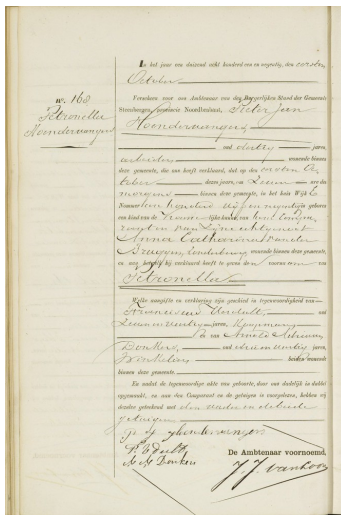 In het jaar een duizend acht honderd een en negentig, den eersten
October
No. 168
Petronella
Hoendervangers
Verscheen voor ons Ambtenaar van den Burgerlijken Stand der Gemeente
Steenbergen, provincie Noordbrabant, Pieter Jan
Hoendervangers,
oud dertig jaren,
arbeider wonende binnen
deze gemeente, die ons heeft verklaard, dat op den eersten Oc
tober dezes jaars, te zeven ure des
morgens binnen deze gemeente, in het huis Wijk
Nommer een honderd vijf en negentig is geboren
een kind van de Vrouwelijke kunne, van hem Compa
rant en van zijne echtgenoot
Anna Catharina van der
wonende binnen deze gemeente,
en aan hetwelk hij verklaart heeft te geven den voornaam van
Petronella
Welke aangifte en verklaring zijn geschied in tegenwoordigheid van
Franciscus oud
jaren, Koopman
en van Arnold Adriaan
Donkers, oud jaren,
Winkelier beiden wonende
binnen deze gemeente.
En nadat de tegenwoordige akte van geboorte, daar van dadelijk in dubbel
opgemaakt, en aan den Comparant en de getuigen is voorgelezen, hebben wij
dezelve geteekend met den vader en de beide
getuigen
P. J. Hoendervangers
A. A. Donkers
De Ambtenaar voornoemd,
J. J. van Loon